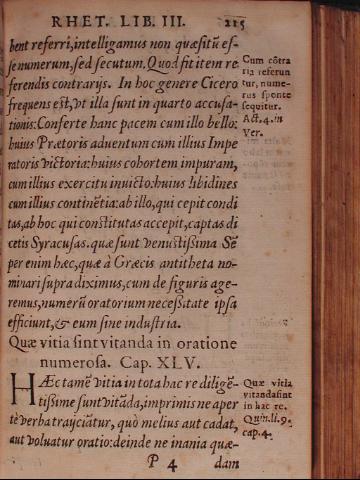 RHET. LIB. III. 215
bent referri, intelligamus non quæsitũ es-
se numerum, sed secutum. Quod fit item re
ferendis contrarijs. In hoc genere Cicero
frequens est, vt illa sunt in quarto accusa-
tionis: Conferte hanc pacem cum illo bello:
huius Prætoris aduentum cum illius Impe
ratoris victoria: huius cohortem impuram,
cum illius exercitu inuicto: huius libidines
cum illius continẽtia: ab illo, qui cepit condi
tas, ab hoc qui constitutas accepit, captas di
cetis Syracusas. quæ sunt venustißima Sẽ
per enim hæc, quæ à Græcis antitheta no-
minari supra diximus, cum de figuris age-
remus, numerũ oratorium necessitate ipsa
efficiunt, & eum sine industria.
Cum cõtra
ria referun
tur, nume-
rus sponte
sequitur.
Act. 4. in
Ver.
Quæ vitia sint vitanda in oratione
numerosa. Cap. XLV.
HÆc tamẽ vitia in tota hac re diligẽ-
tißime sunt vitãda, imprimis ne aper
tè verba trayciãtur, quò melius aut cadat,
aut voluatur oratio: deinde ne inania quæ-
Quæ vitia
vitandasint
in hac re.
Quin. li. 9.
cap. 4.
P 4 dam